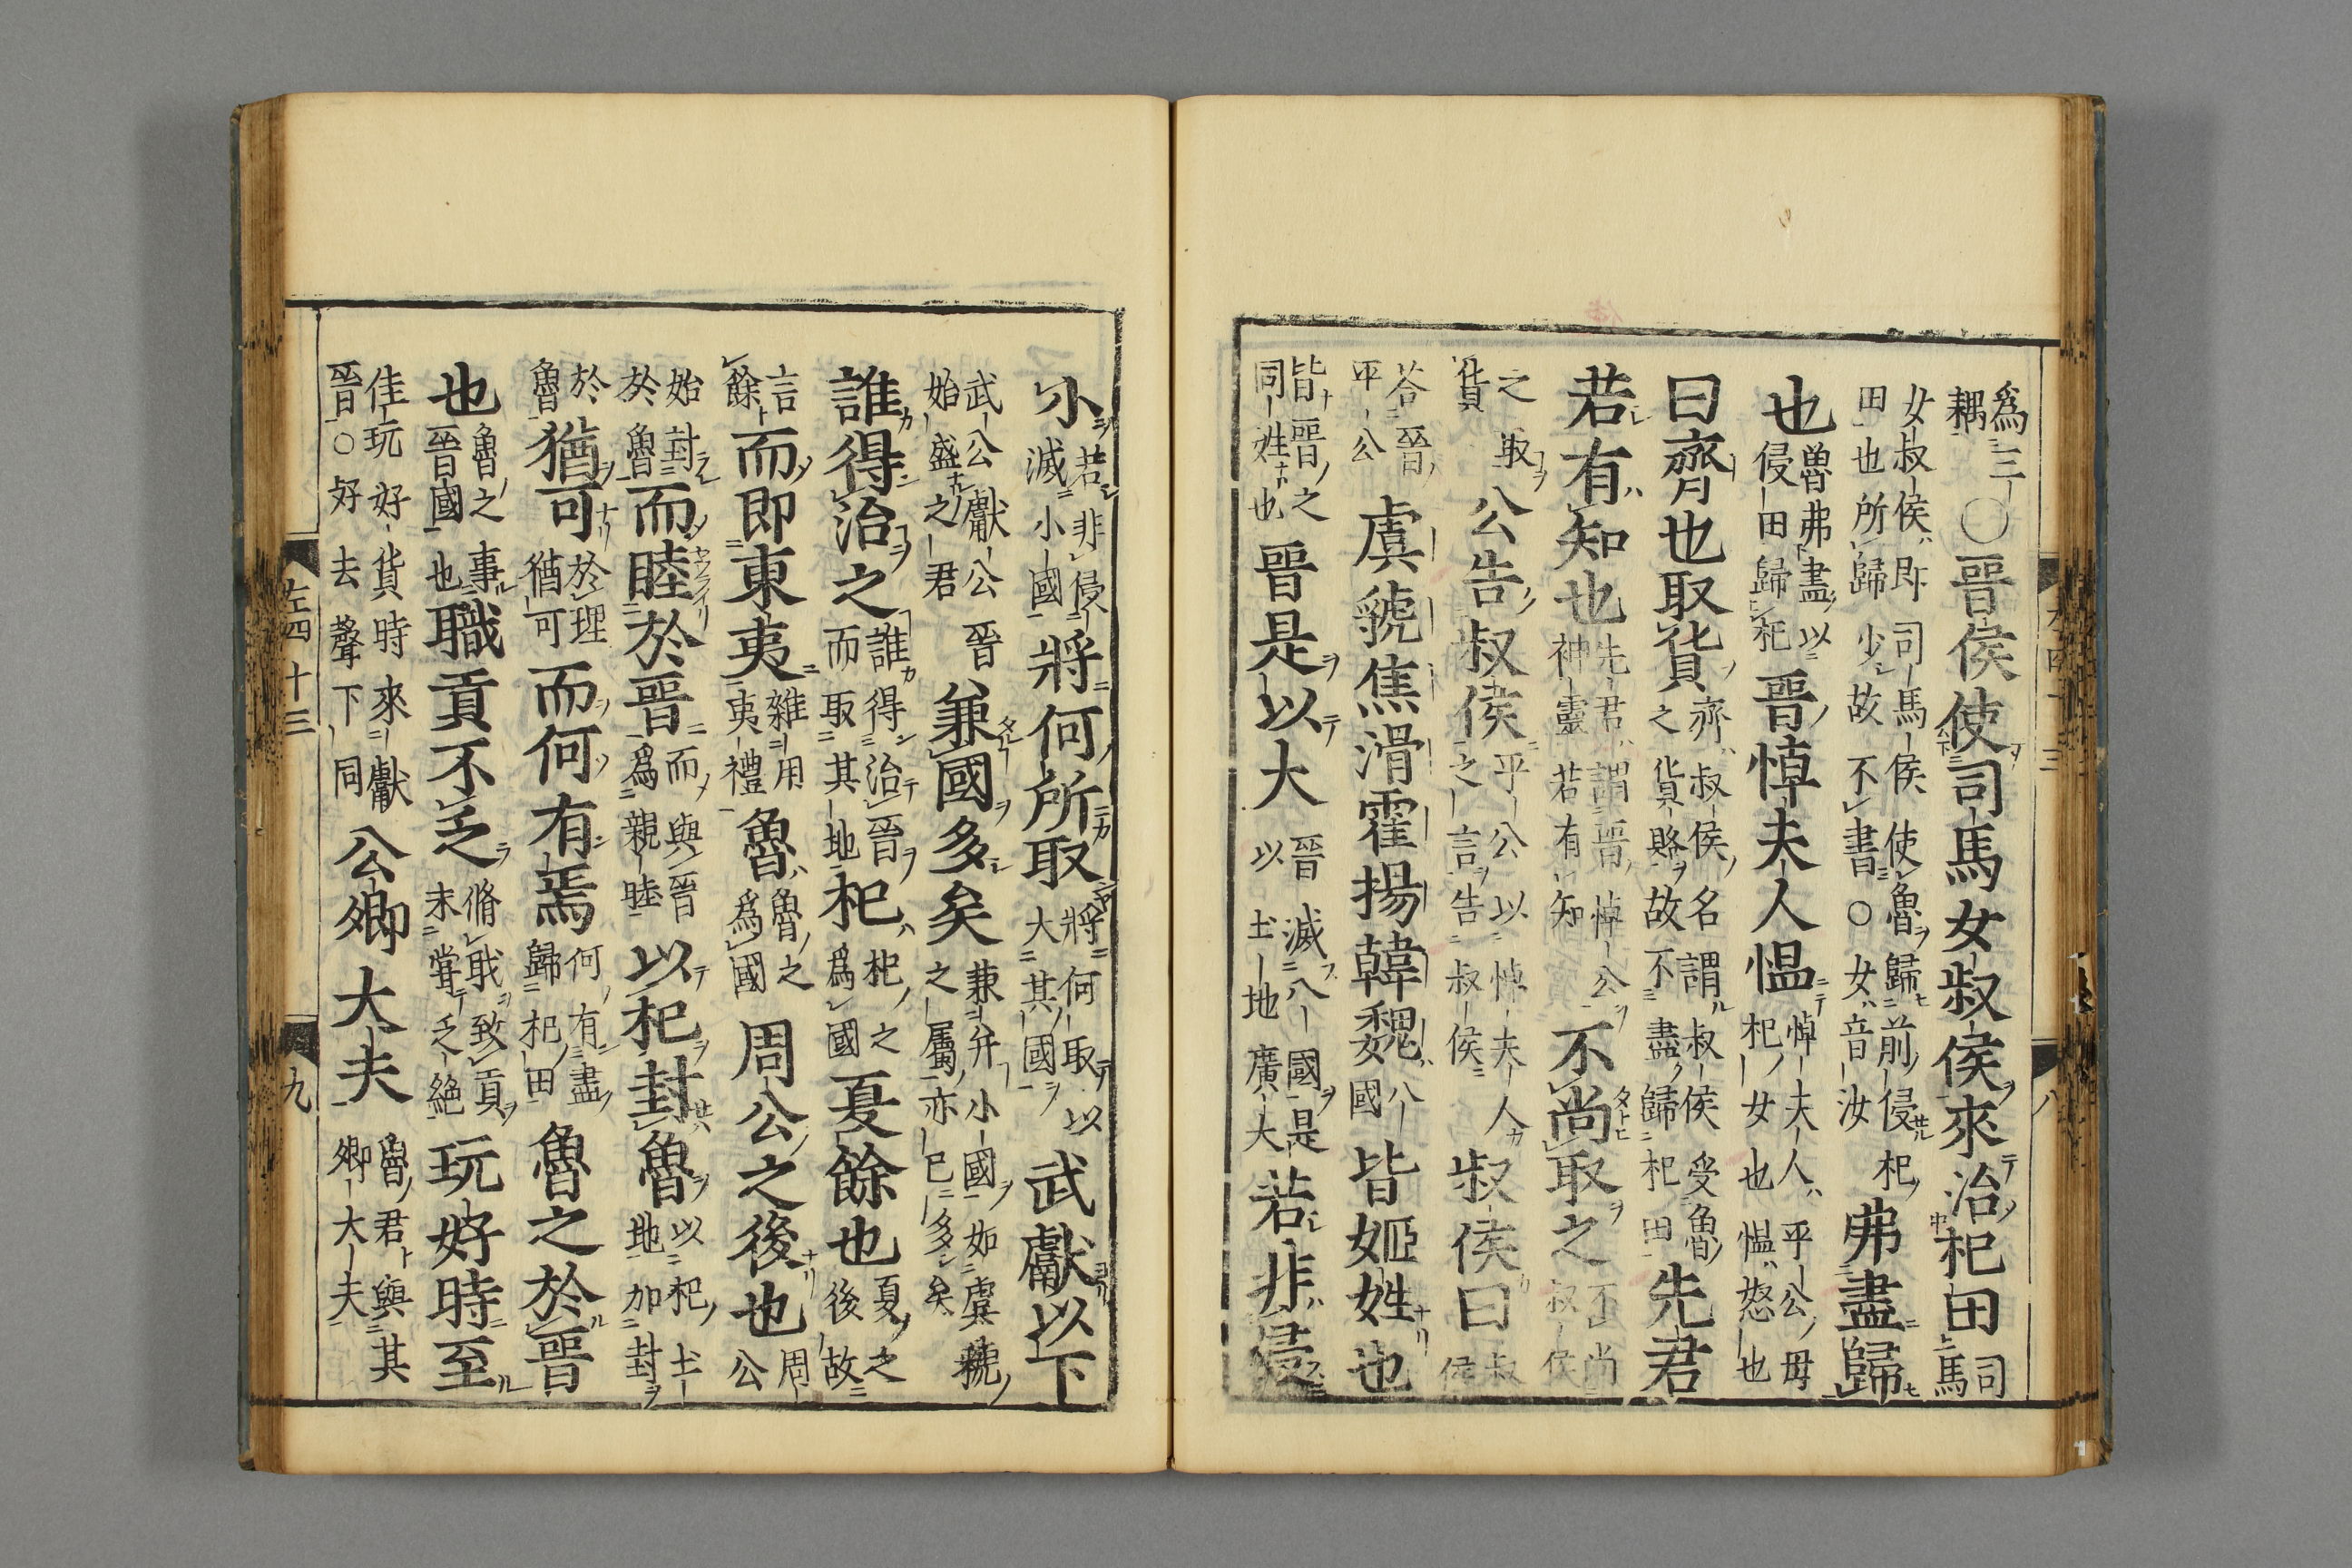 爲三耦〇晉侯使司馬女叔侯來治杞田司馬
女叔侯即司馬侯使魯歸前侵杞田也所歸少故不書〇女音汝弗盡歸
也魯弗盡以侵田歸杞晉悼夫人愠悼夫人平公母杞女也愠怒也
曰齊也取貨齊叔侯名謂叔侯受魯之貨賂故不盡歸杞田先君
若有知也先君謂晉悼公神靈若有知不尚取之不尚叔侯
之取貨公告叔侯平公以悼夫人之言告叔侯叔侯曰叔侯
荅晉平公虞虢焦滑霍揚韓魏八國皆姬姓也
皆晉之同姓也晉是以大晉滅八國是以土地廣大若非侵
小若非侵滅小國將何所取將何取以大其國武獻以下
武公獻公晉始盛之君兼國多矣兼并小國如虞虢之屬亦已多矣
誰得治之誰得治晉而取其地杞夏餘也杞之爲國夏之後故
言餘而即東夷雜用夷禮魯周公之後也魯之爲國周公
始封於魯而睦於晉而與晉爲親睦以杞封魯以杞土地加封
於魯猶可於理猶可而何有焉何有盡歸杞田魯之於晉
也魯之事晉國也職貢不乏脩職致貢未嘗乏絶玩好時至
佳玩好貨時來獻晉〇好去聲下同公卿大夫魯君與其卿大夫
左四十三
九
八